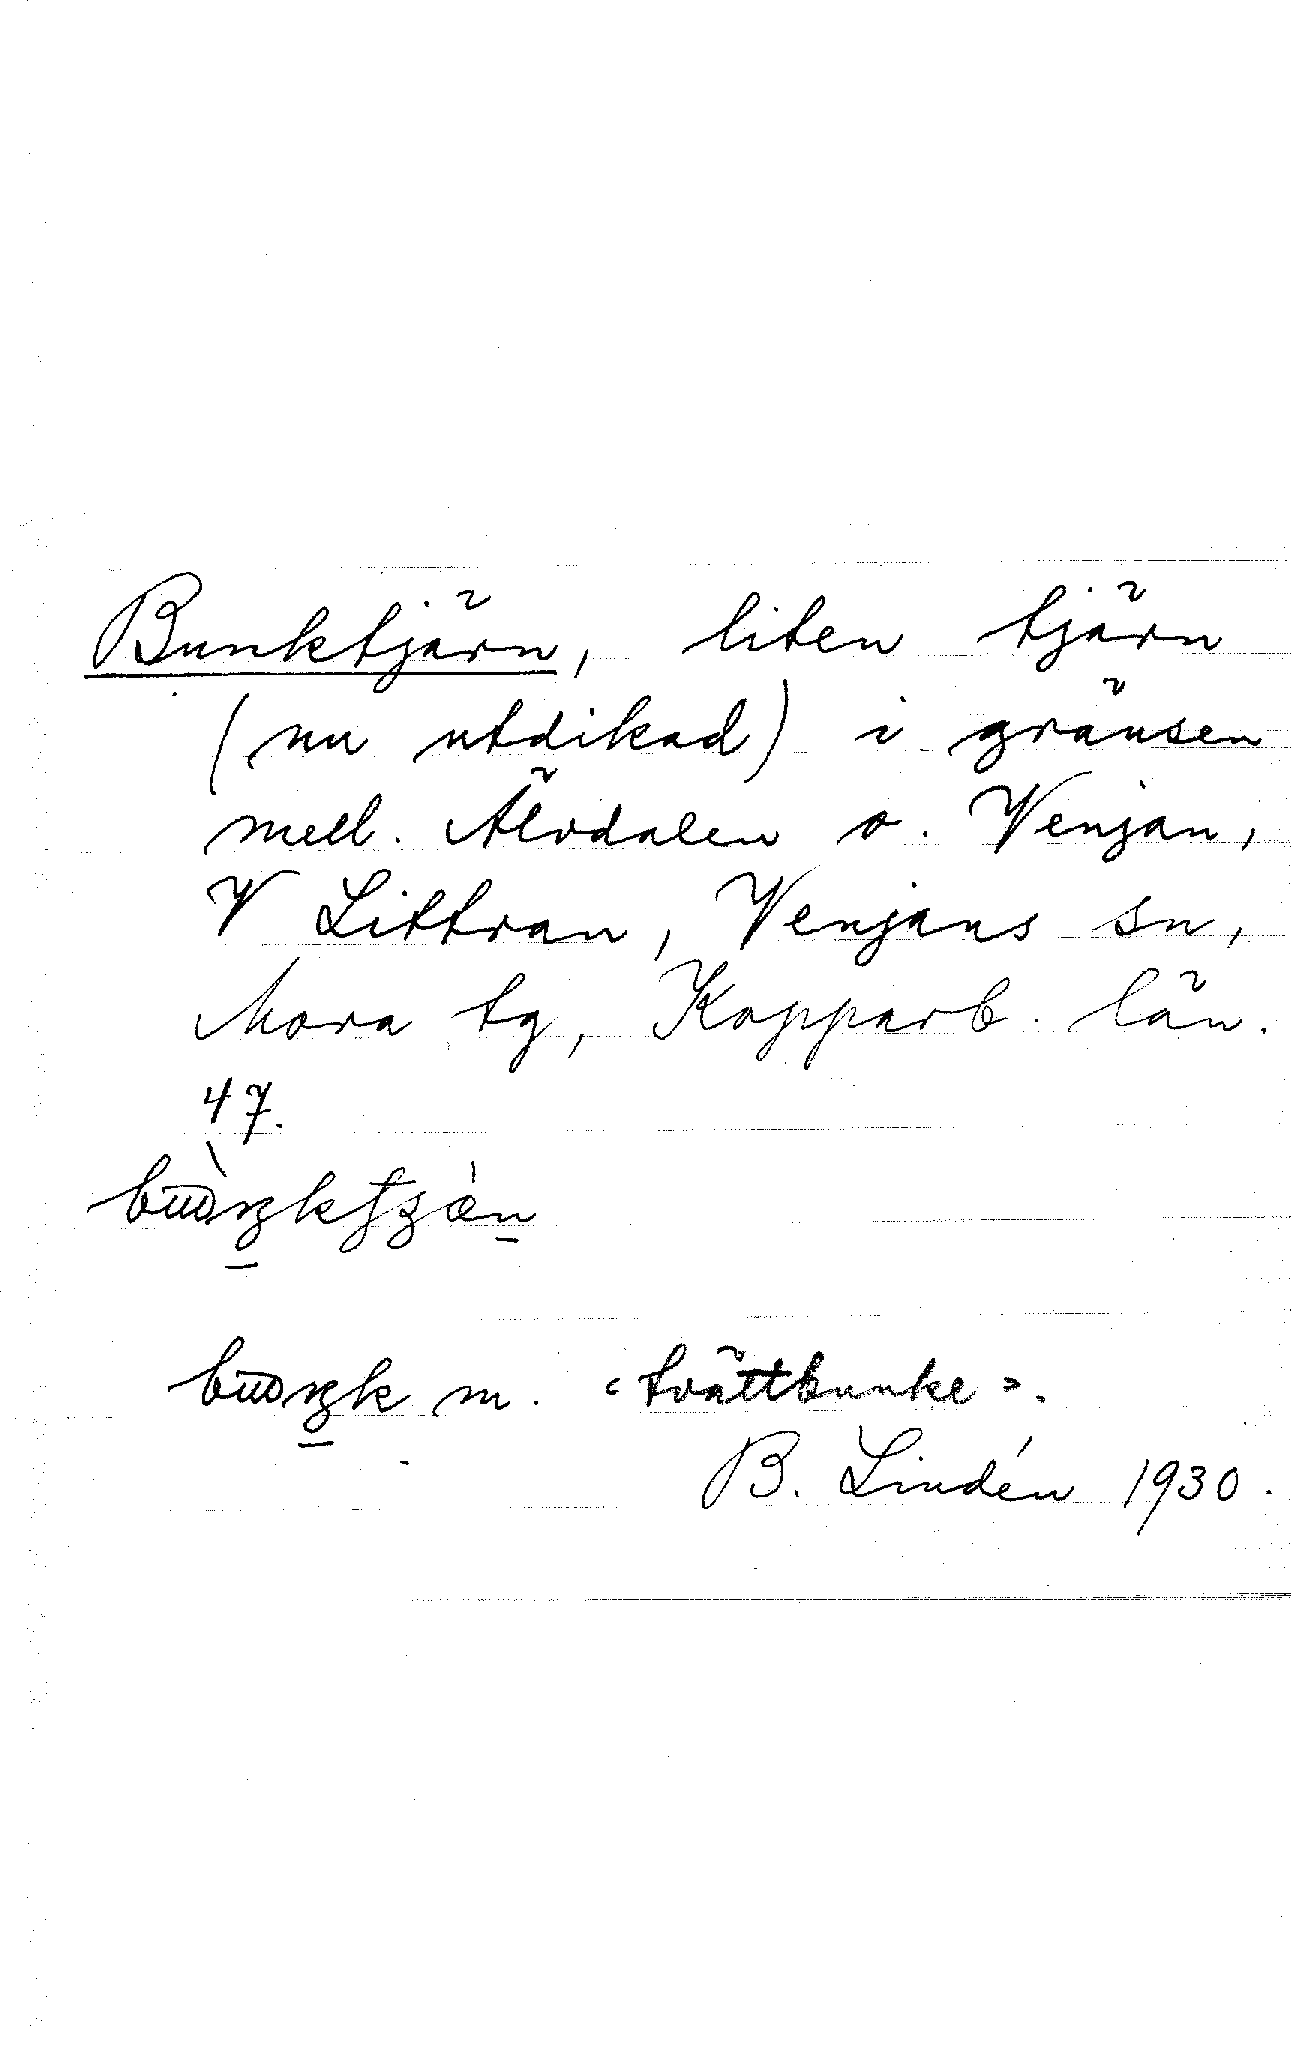 Bunktjärn, liten tjärn
(nu utdikad) i gränsen
mell. Älvdalen o. Venjan,
V Littran, Venjans sn,
Mora tg, Kopparb. län.
47.
m. "tvättbunke".
B. Lindén 1930.